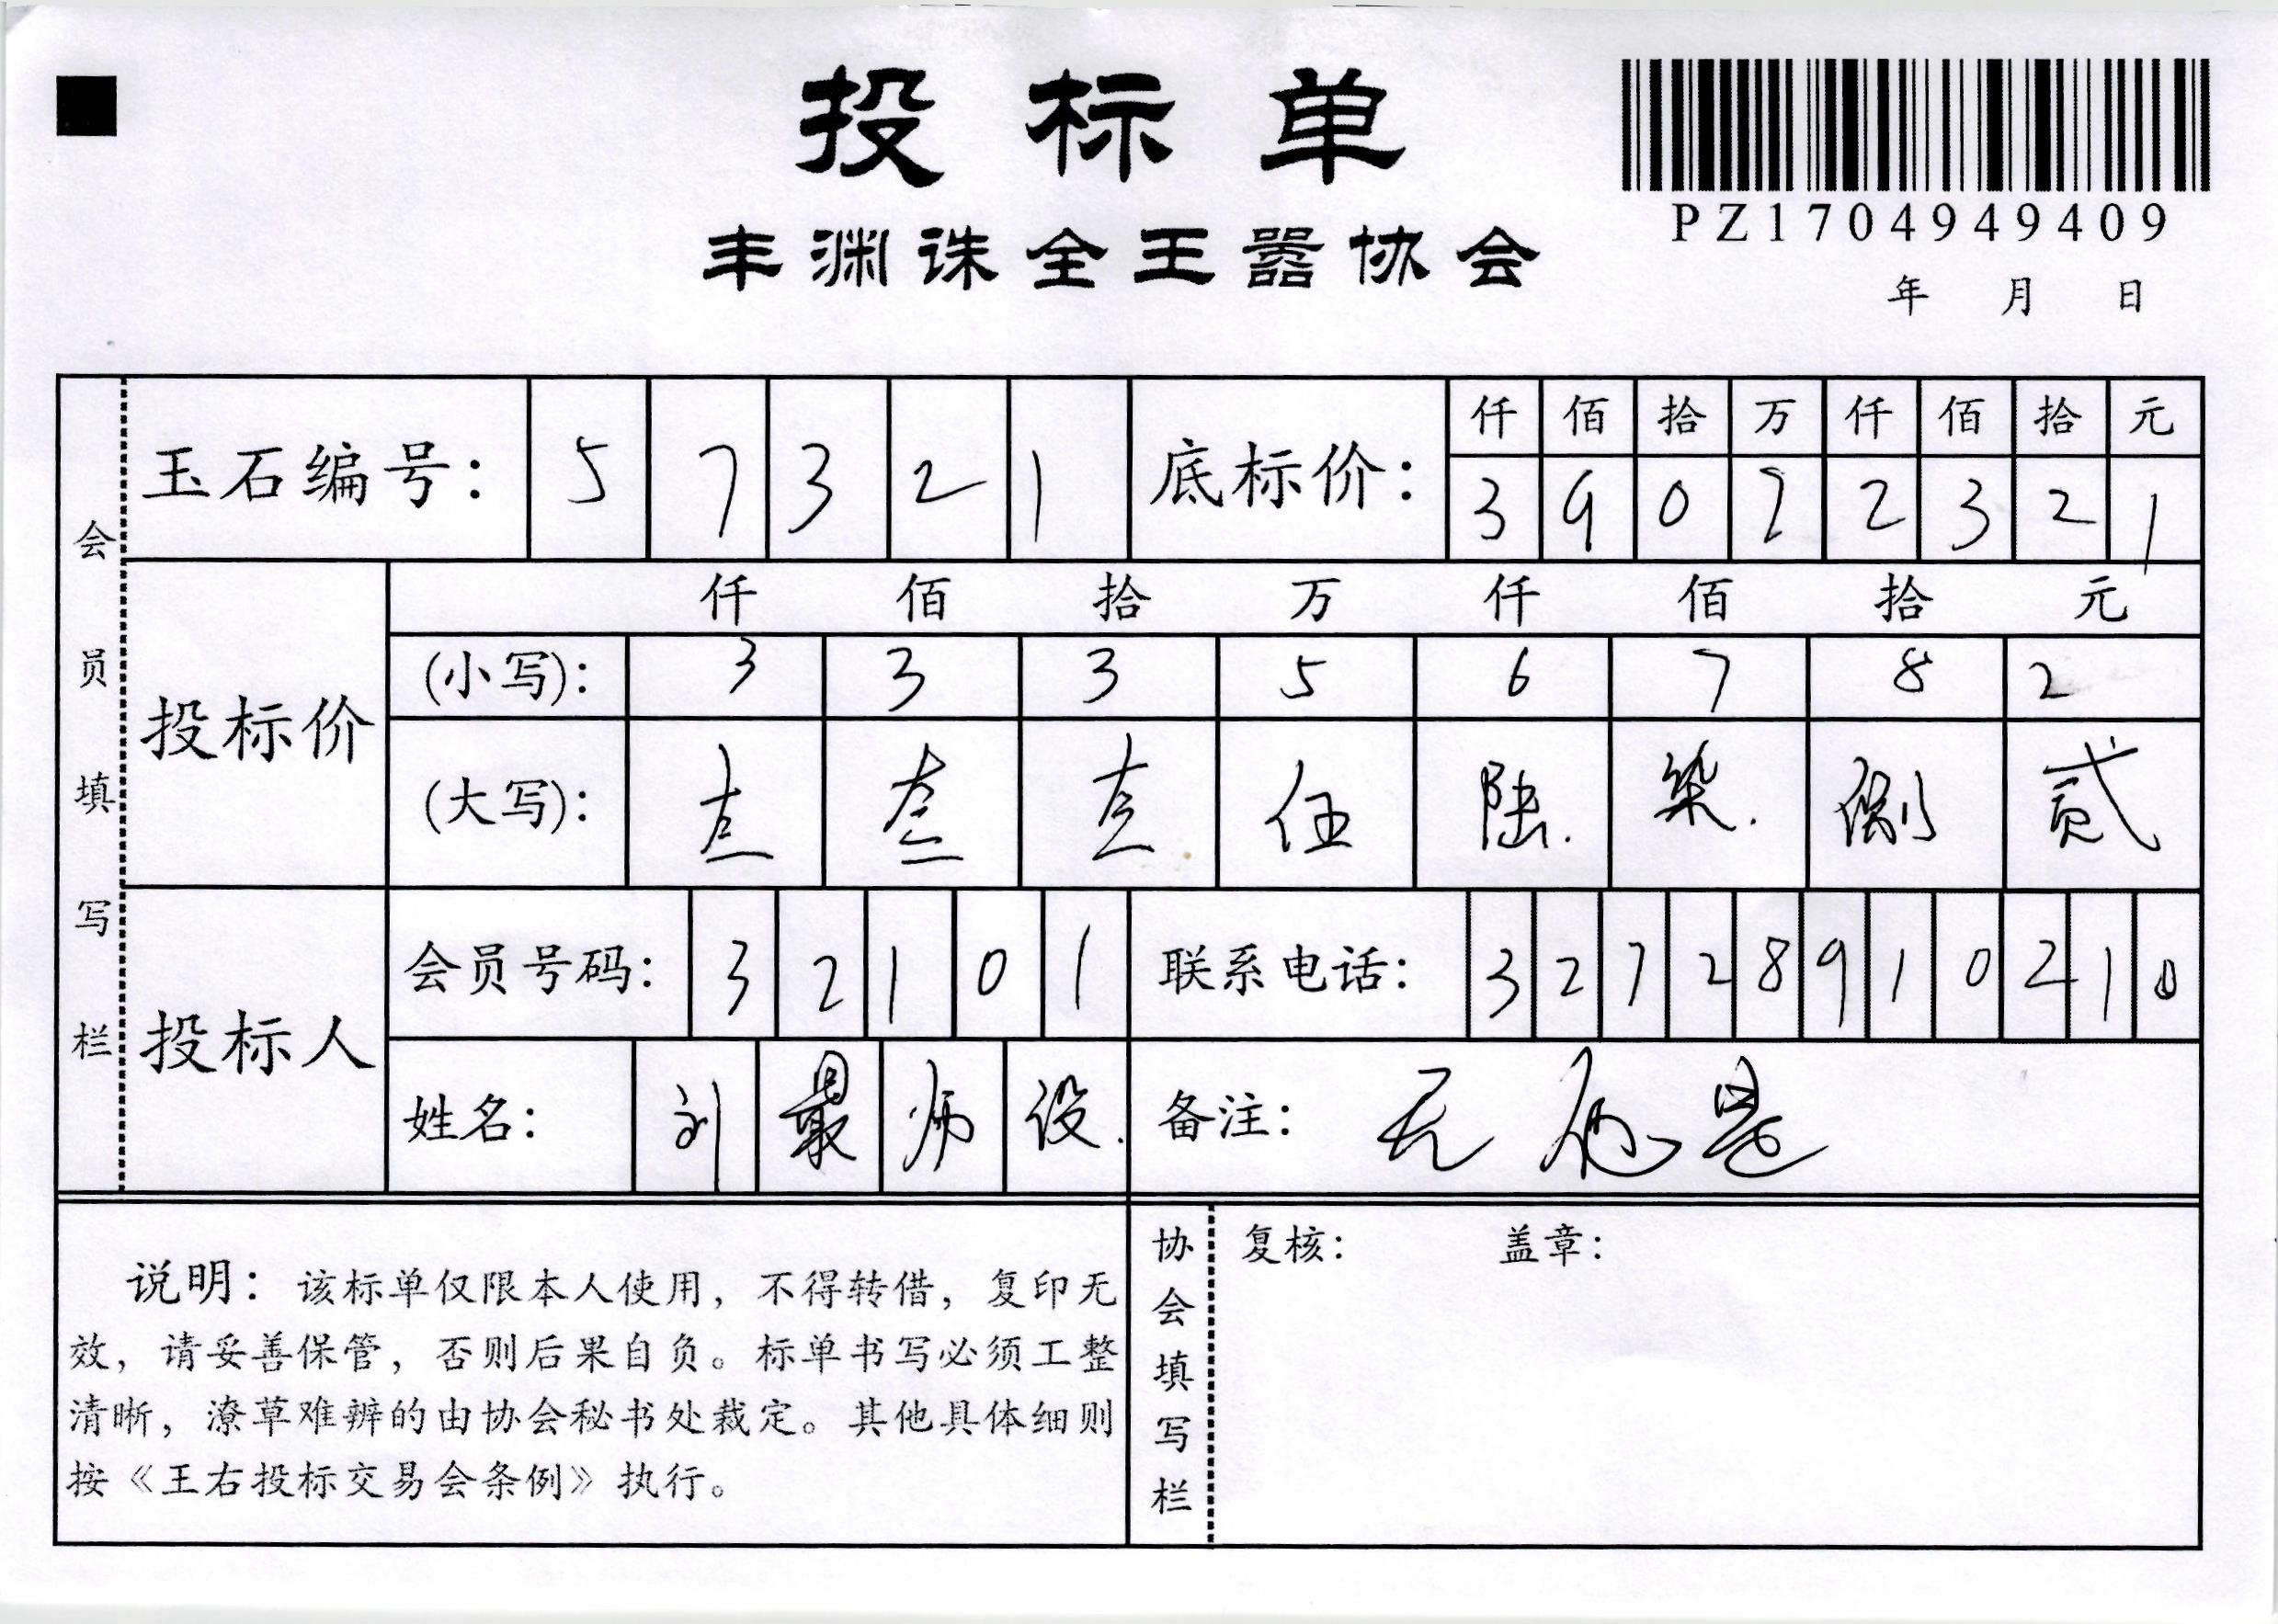 投标单
丰渊诛全王嚣协会
PZ1704949409
年 月 日
会员填写栏
玉石编号: 5 7 3 2 1
底标价: 仟 佰 拾 万 仟 佰 拾 元
3 9 0 2 2 3 2 1
投标价
仟 佰 拾 万 仟 佰 拾 元
(小写): 3 3 3 5 6 7 8 2
(大写): 叁 叁 叁 伍 陆. 柒. 捌 贰
投标人
会员号码: 3 2 1 0 1
联系电话: 3 2 7 2 8 9 1 0 2 1 0
姓名: 刘 最
备注: 无
说明: 该标单仅限本人使用, 不得转借, 复印无
效, 请妥善保管, 否则后果自负。标单书写必须工整
清晰, 潦草难辨的由协会秘书处裁定。其他具体细则
按《王右投标交易会条例》执行。
协会填写栏
复核: 盖章: